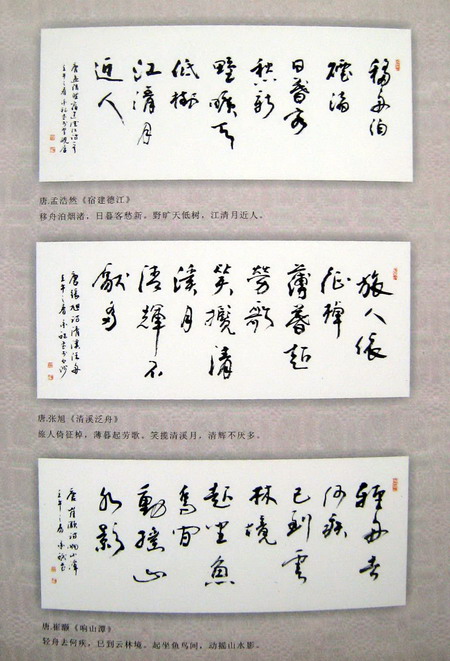 移舟泊
煙渚
日暮客
愁新
野曠天
低樹
江清月
近人
唐.孟浩然《宿建德江》
移舟泊烟渚，日暮客愁新，野旷天低树，江清月近人。
旅人倚
征棹
薄暮起
勞歌
笑攬清
溪月
清輝不
厭多
唐張旭詩清溪泛舟
唐.张旭《清溪泛舟》
旅人倚征棹，薄暮起劳歌，笑揽清溪月，清辉不厌多。
輕舟去
何疾
已到雲
林境
起坐魚
鳥間
動搖山
水影
唐.崔颢《响山潭》
轻舟去何疾，已到云林境。起坐鱼鸟间，动摇山水影。